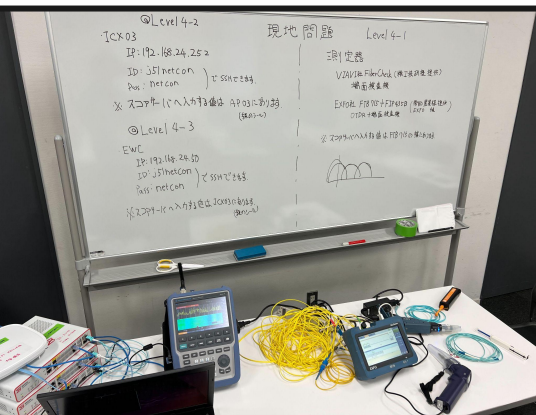 現地問題
◎Level 4-2
・ICX03
IP:192.168.24.252
ID: j51netcon
Pass: netcon
でSSHできます.
※ スコアサーバへ入力する値は AP03にあります
◎Level 4-3
・EWC
IP:192.168.24.50
ID: j51netcon
Pass: netcon
でSSHできます.
※スコアサーバへ入力する値はICX03にあります
Level 4-1
測定器
VIAVI社 FiberCheck
端面検査機
EXFO社
OTDR+端面検査機
※ スコアサーバへ入力する値は